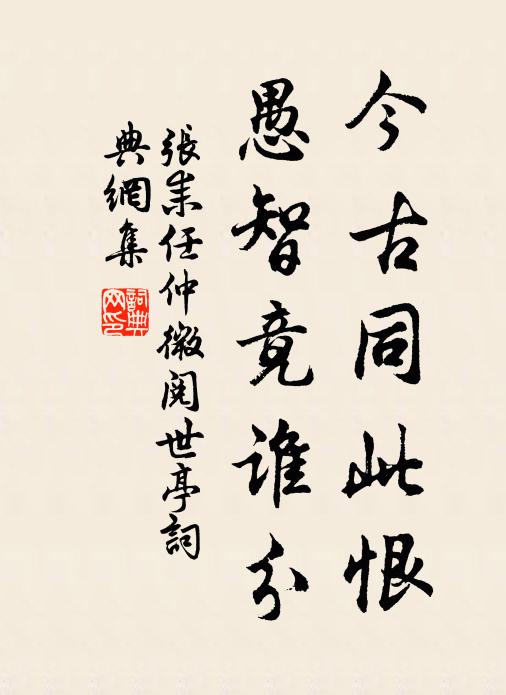 今古同此恨
愚智竟誰分
張耒任仲微閱世亭詞
典網集
詞典網印